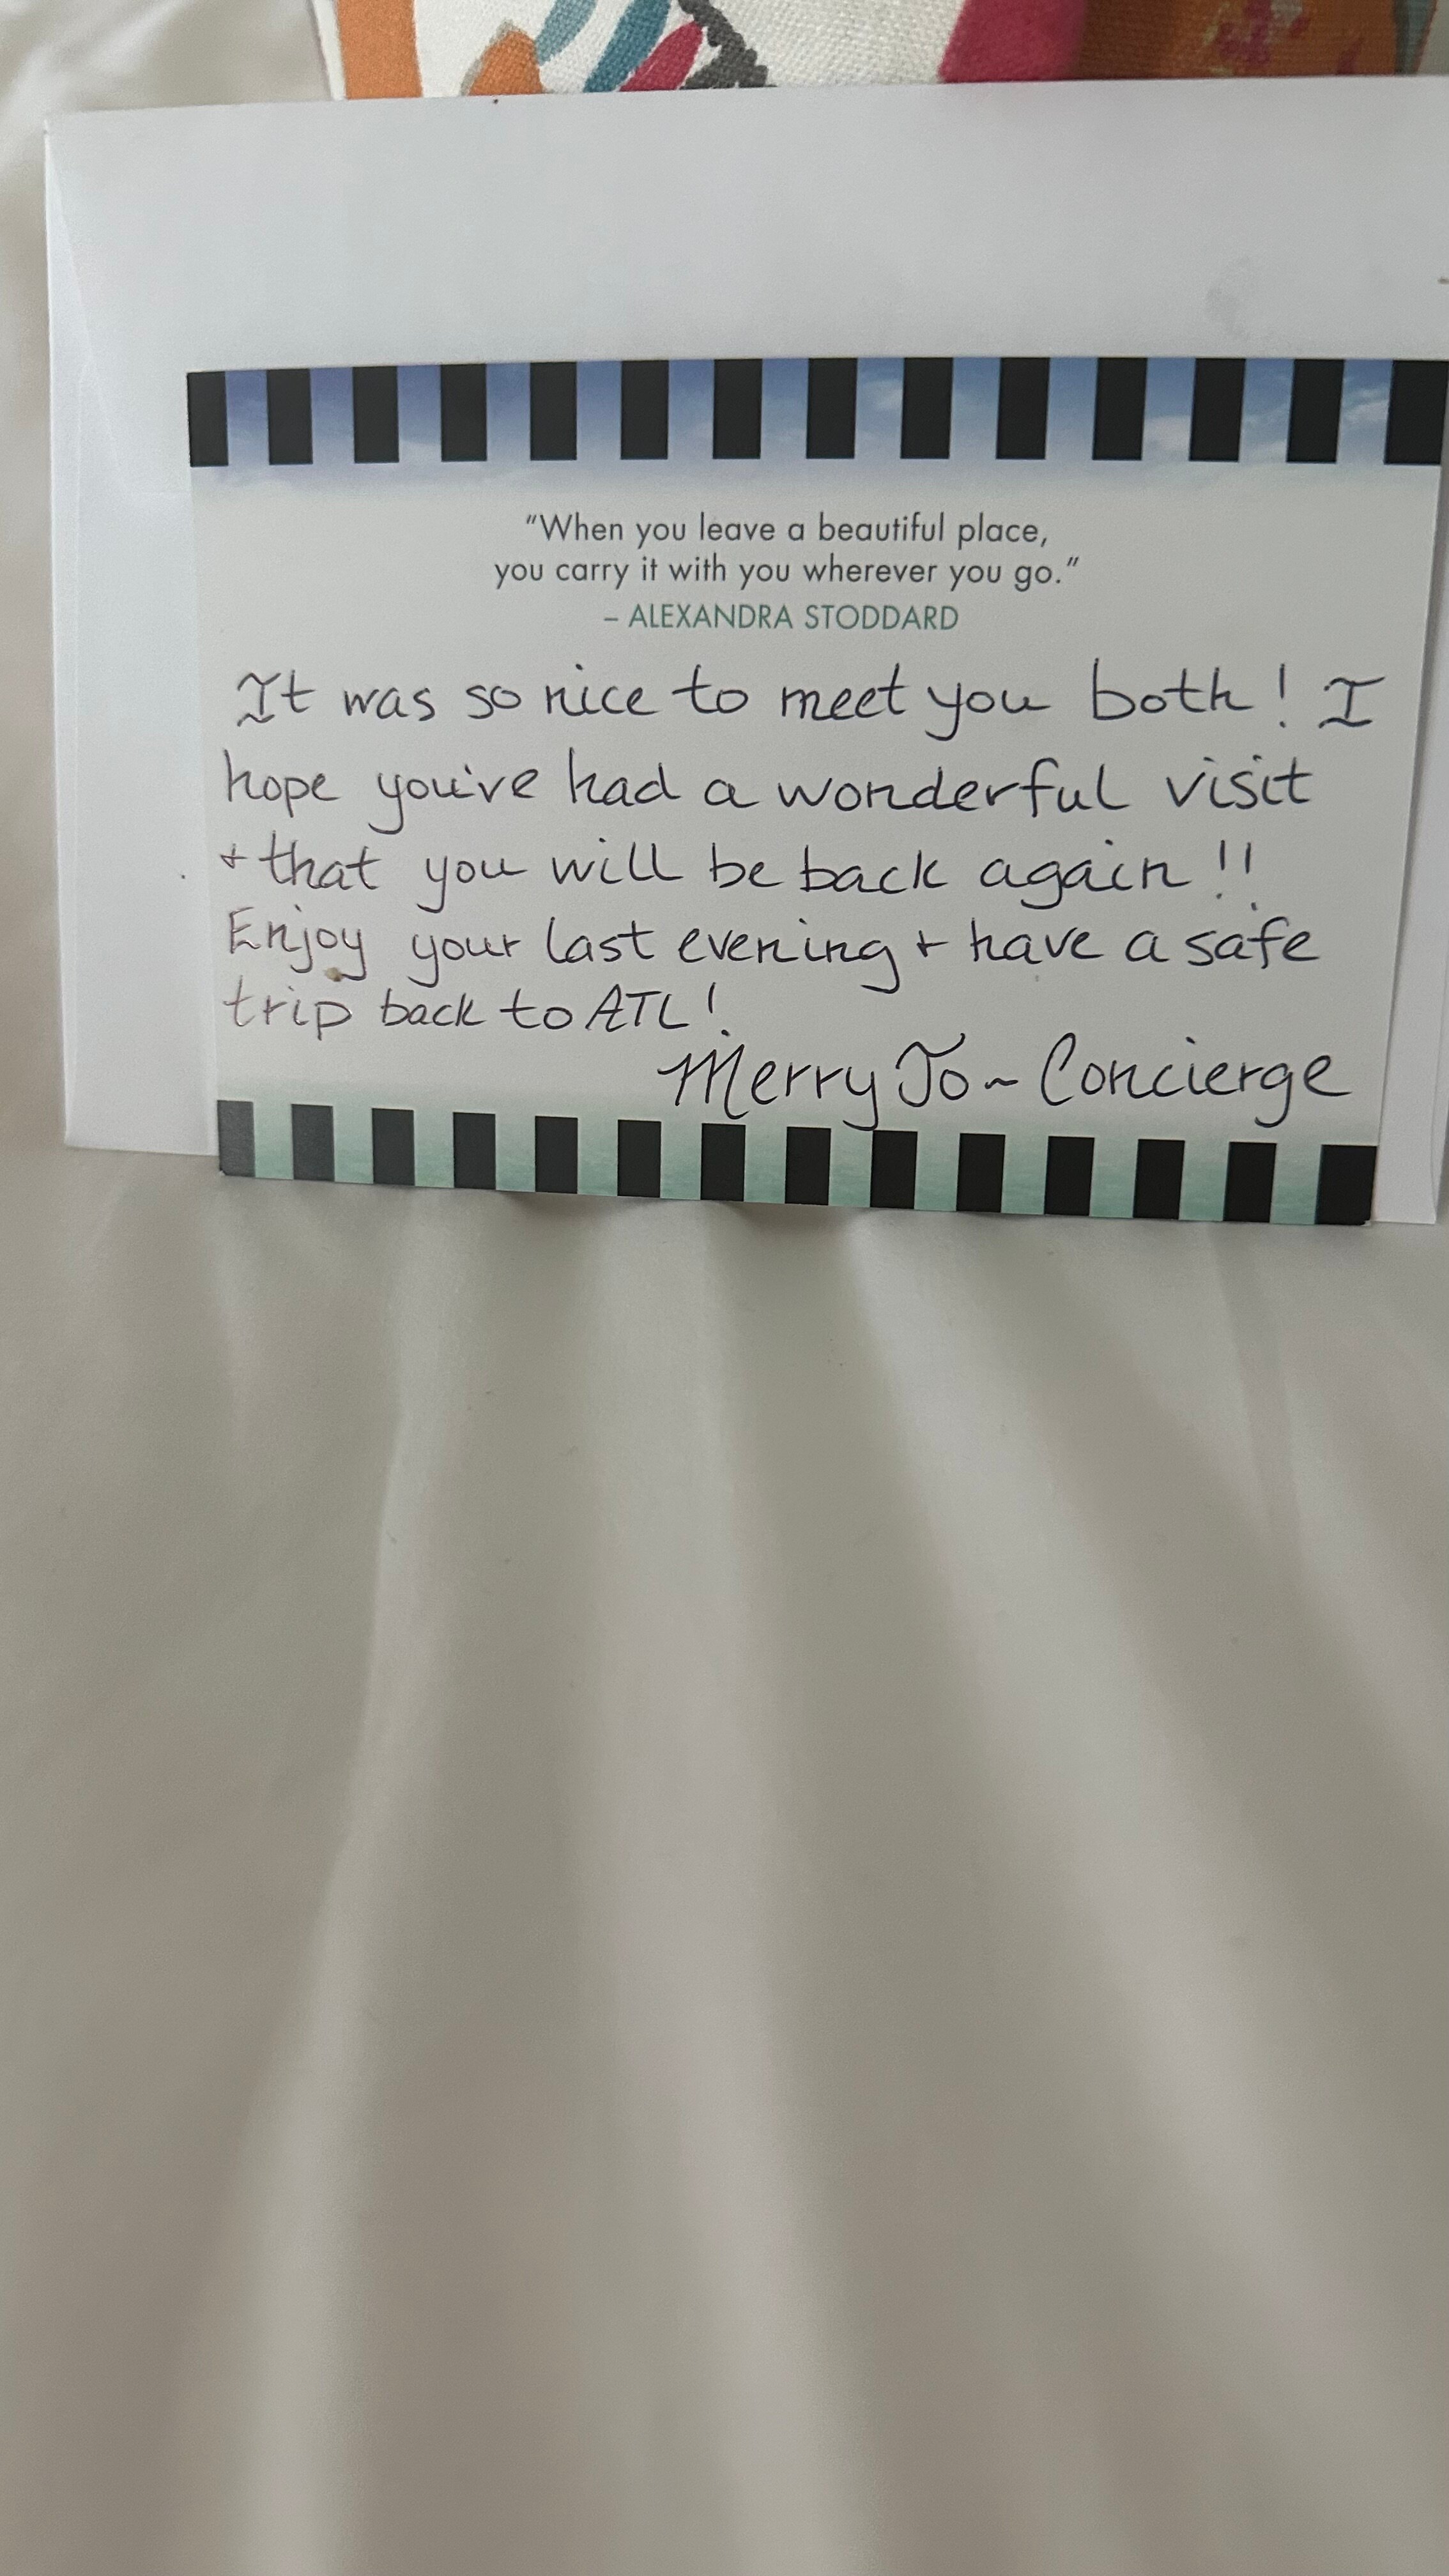 “When you leave a beautiful place,
you carry it with you wherever you go.”
– ALEXANDRA STODDARD
It was so nice to meet you both! I
hope you've had a wonderful visit
+ that you will be back again!!
Enjoy your last evening + have a safe
trip back to ATL!
Merry Jo ~ Concierge